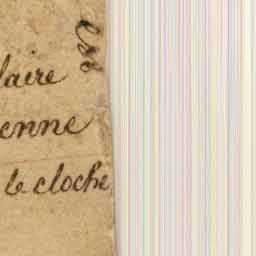 laire
enne
le cloche